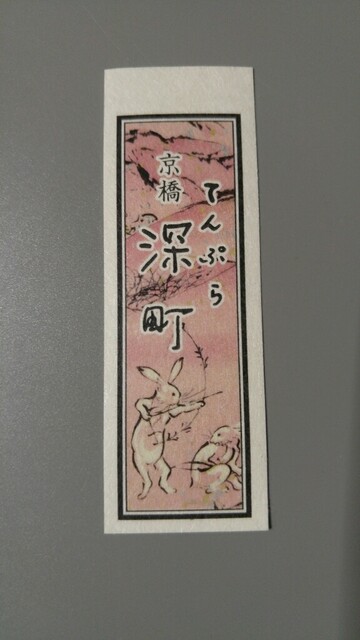 てんぷら
京橋
深町